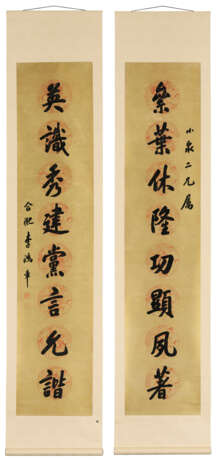 小泉二兄屬
絫葉休隆功顯夙著
英識秀建黨言允諧
合肥李鴻章